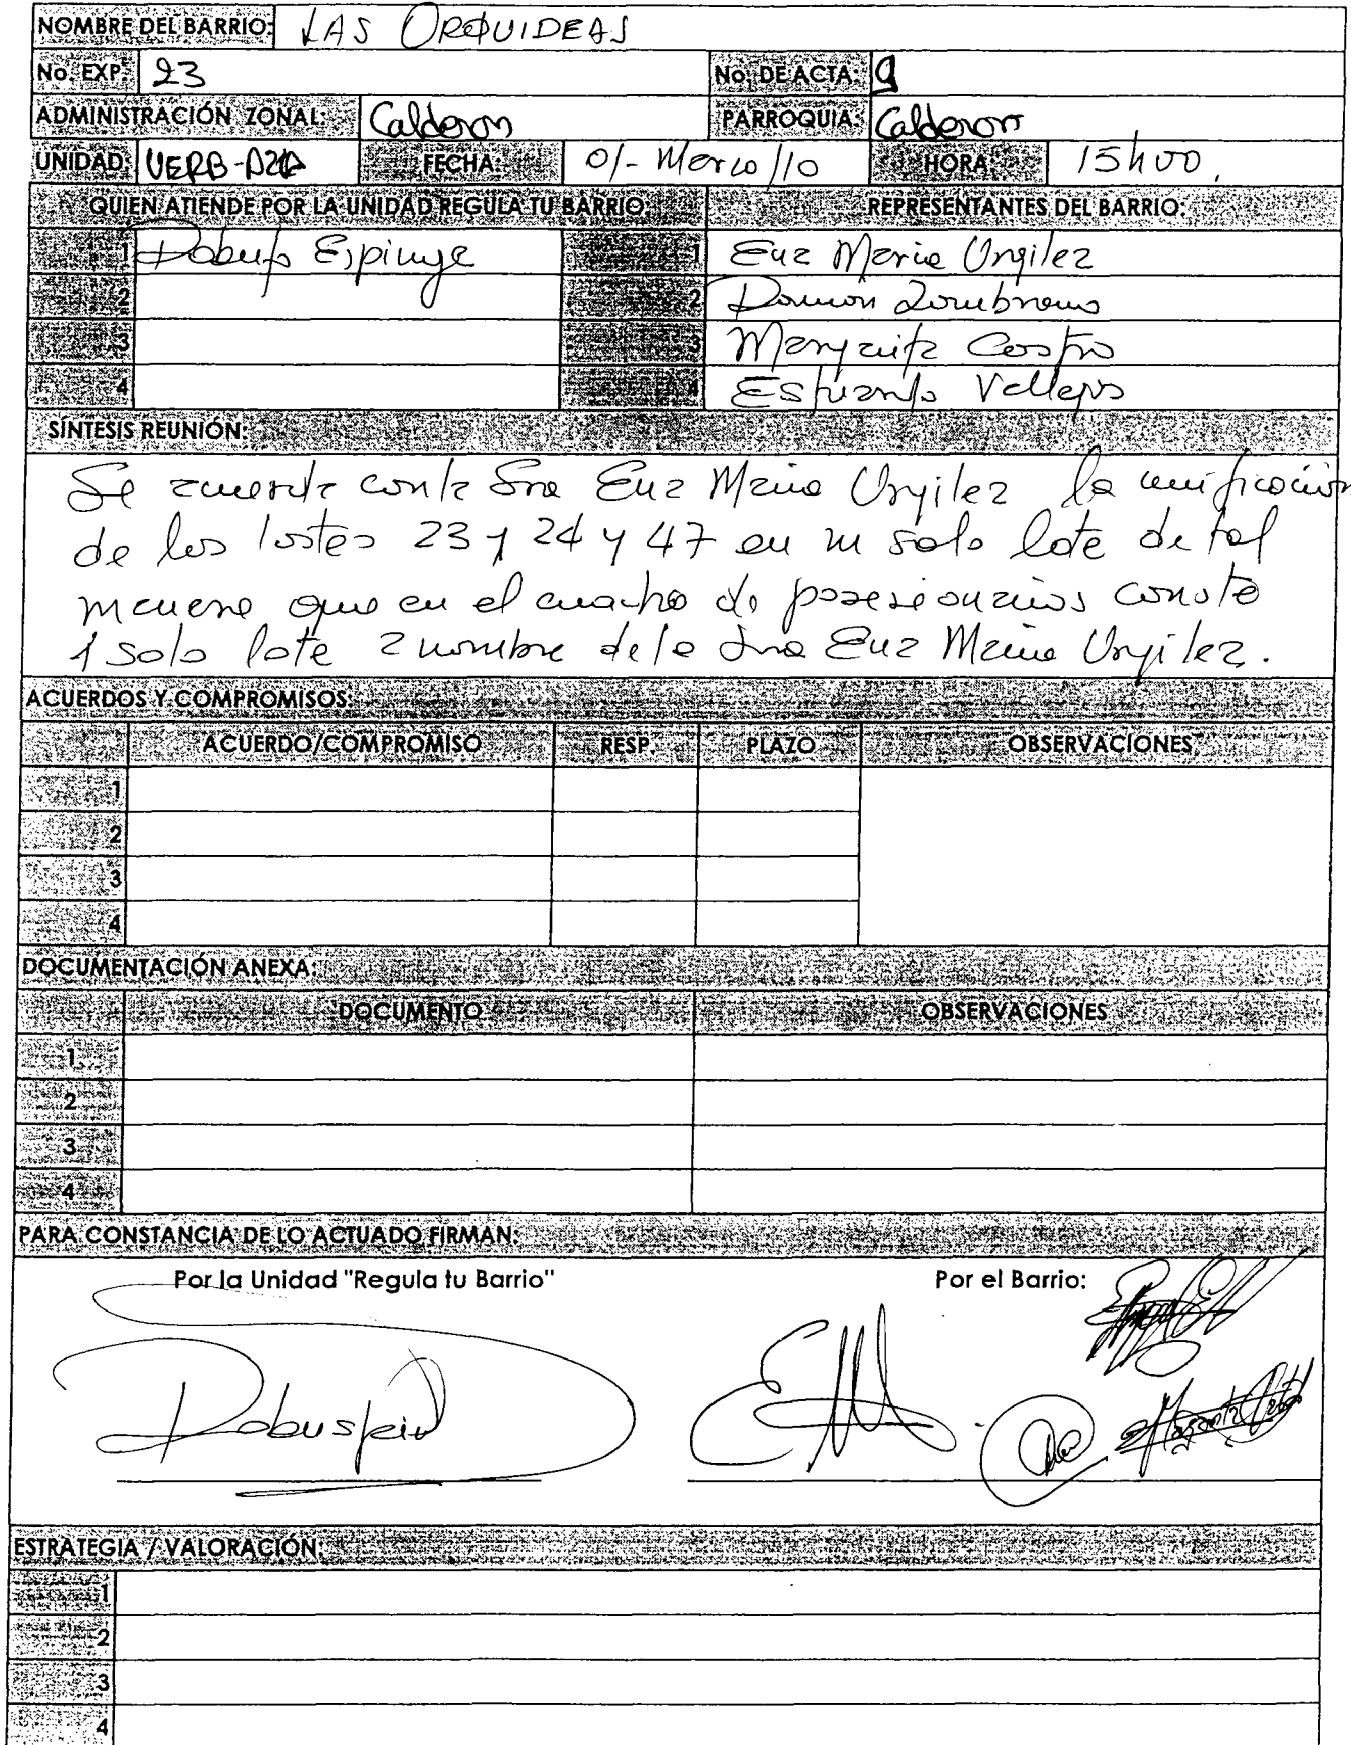 NOMBRE DEL BARRIO: LAS ORQUIDEAS
No. EXP: 23 No. DE ACTA: 9
ADMINISTRACIÓN ZONAL: Calderon PARROQUIA: Calderon
UNIDAD: UERB-AZCA FECHA: 01-Marzo/10 HORA: 15h00.
QUIEN ATIENDE POR LA UNIDAD REGULA TU BARRIO: REPRESENTANTES DEL BARRIO:
1 1 Euz Maria Urgilez
2 2 Zambrano
3 3 Margarita Castro
4 4 Vallejos
SÍNTESIS REUNIÓN:
Se acuerda con la Sra Euz Maria Urgilez la unificación
de los lostes 23 y 24 y 47 en un solo lote de tal
manera que en el cuadro de posesionarios conste
1 solo lote a nombre de la Sra Euz Maria Urgilez.
ACUERDOS Y COMPROMISOS:
ACUERDO/COMPROMISO RESP. PLAZO OBSERVACIONES
1
2
3
4
DOCUMENTACIÓN ANEXA:
DOCUMENTO OBSERVACIONES
1
2
3
4
PARA CONSTANCIA DE LO ACTUADO FIRMAN:
Por la Unidad "Regula tu Barrio" Por el Barrio:
ESTRATEGIA / VALORACIÓN:
1
2
3
4